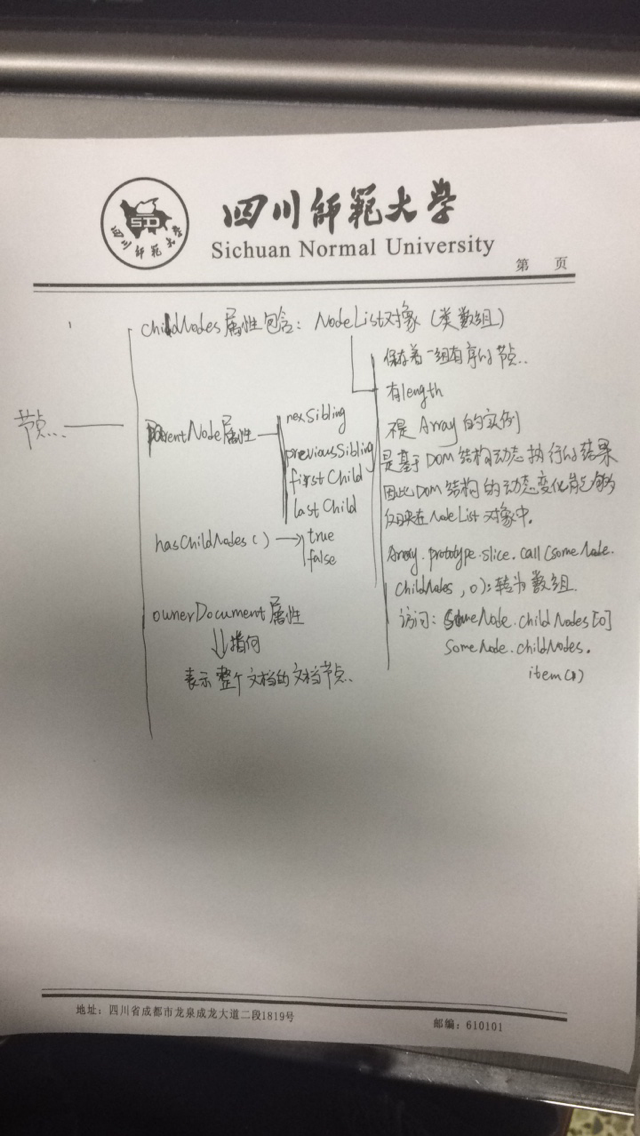 四川师范大学
SD
四川师范大学
Sichuan Normal University
第 页
childNodes 属性包含: NodeList对象 (类数组)
保存着一组有序的节点..
有length
不是 Array 的实例
是基于 DOM 结构动态执行的结果
因此DOM 结构的动态变化能够
反映在NodeList 对象中.
Array.prototype.slice.call(someNode.
childNodes, 0); 转为数组.
访问: someNode.childNodes[0]
someNode.childNodes.
item(1)
节点...
parentNode属性
nexSibling
previousSibling
firstChild
lastChild
hasChildNodes()
true
false
ownerDocument 属性
指向
表示整个文档的文档节点.
地址: 四川省成都市龙泉成龙大道二段1819号
邮编: 610101